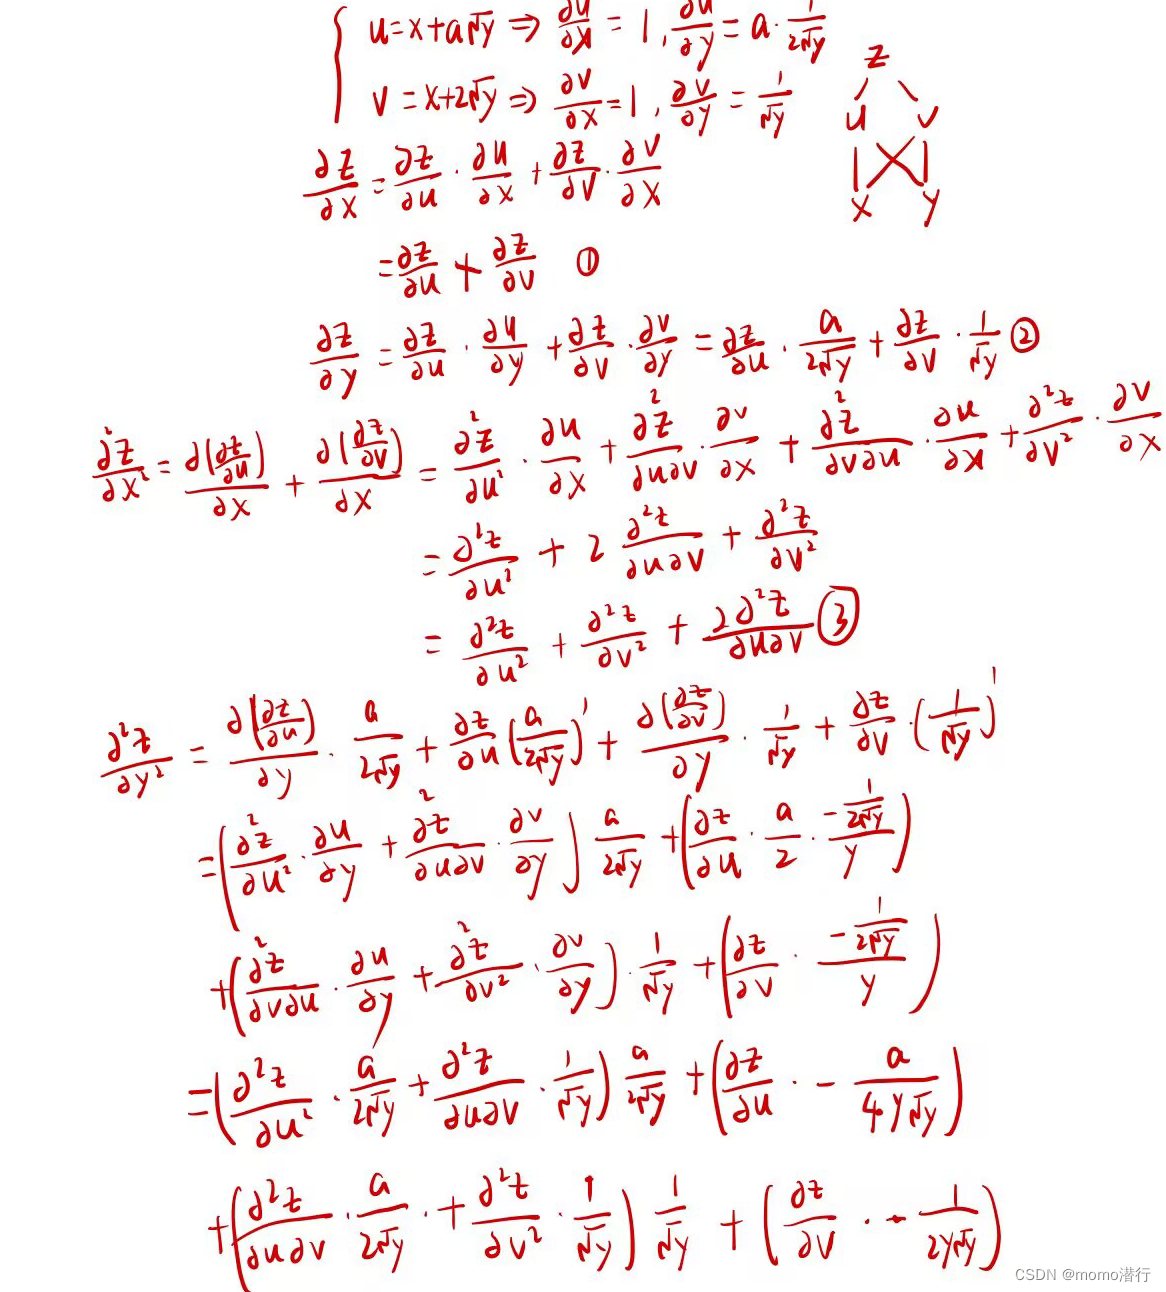 { u=x+a√y ⇒ ∂u/∂x = 1, ∂u/∂y = a·1/(2√y)
v=x+2√y ⇒ ∂v/∂x = 1, ∂v/∂y = 1/√y
z
u v
x y
∂z/∂x = ∂z/∂u · ∂u/∂x + ∂z/∂v · ∂v/∂x
= ∂z/∂u + ∂z/∂v ①
∂z/∂y = ∂z/∂u · ∂u/∂y + ∂z/∂v · ∂v/∂y = ∂z/∂u · a/(2√y) + ∂z/∂v · 1/√y ②
∂²z/∂x² = ∂(∂z/∂u)/∂x + ∂(∂z/∂v)/∂x = ∂²z/∂u² · ∂u/∂x + ∂²z/∂u∂v · ∂v/∂x + ∂²z/∂v∂u · ∂u/∂x + ∂²z/∂v² · ∂v/∂x
= ∂²z/∂u² + 2 ∂²z/∂u∂v + ∂²z/∂v²
= ∂²z/∂u² + ∂²z/∂v² + 2∂²z/∂u∂v ③
∂²z/∂y² = ∂(∂z/∂u)/∂y · a/(2√y) + ∂z/∂u (a/(2√y))' + ∂(∂z/∂v)/∂y · 1/√y + ∂z/∂v · (1/√y)'
= (∂²z/∂u² · ∂u/∂y + ∂²z/∂u∂v · ∂v/∂y) a/(2√y) + (∂z/∂u · a/2 · (-1/(2√y))/y)
+ (∂²z/∂v∂u · ∂u/∂y + ∂²z/∂v² · ∂v/∂y) · 1/√y + (∂z/∂v · (-1/(2√y))/y)
= (∂²z/∂u² · a/(2√y) + ∂²z/∂u∂v · 1/√y) a/(2√y) + (∂z/∂u · - a/(4y√y))
+ (∂²z/∂u∂v · a/(2√y) · + ∂²z/∂v² · 1/√y) 1/√y + (∂z/∂v · - 1/(2y√y))
CSDN @momo潜行